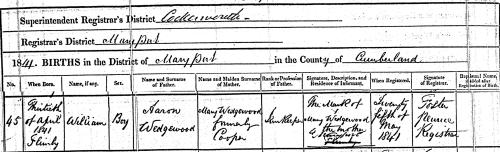 Superintendent Registrar's District Cockermouth
Registrar's District Maryport
1841. BIRTHS in the District of Maryport in the County of Cumberland
No. When Born. Name, if any. Sex. Name and Surname of Father. Name and Maiden Surname of Mother. Rank or Profession of Father. Signature, Description, and Residence of Informant. When Registered. Signature of Registrar. Baptismal Name, if added after Registration of Birth.
45 Thirtieth of April 1841 Flimby William Boy Aaron Wedgewood Mary Wedgewood formerly Cooper Inn Keeper The Mark of Mary Wedgewood The mother Flimby Twenty fifth of May 1841 Registrar